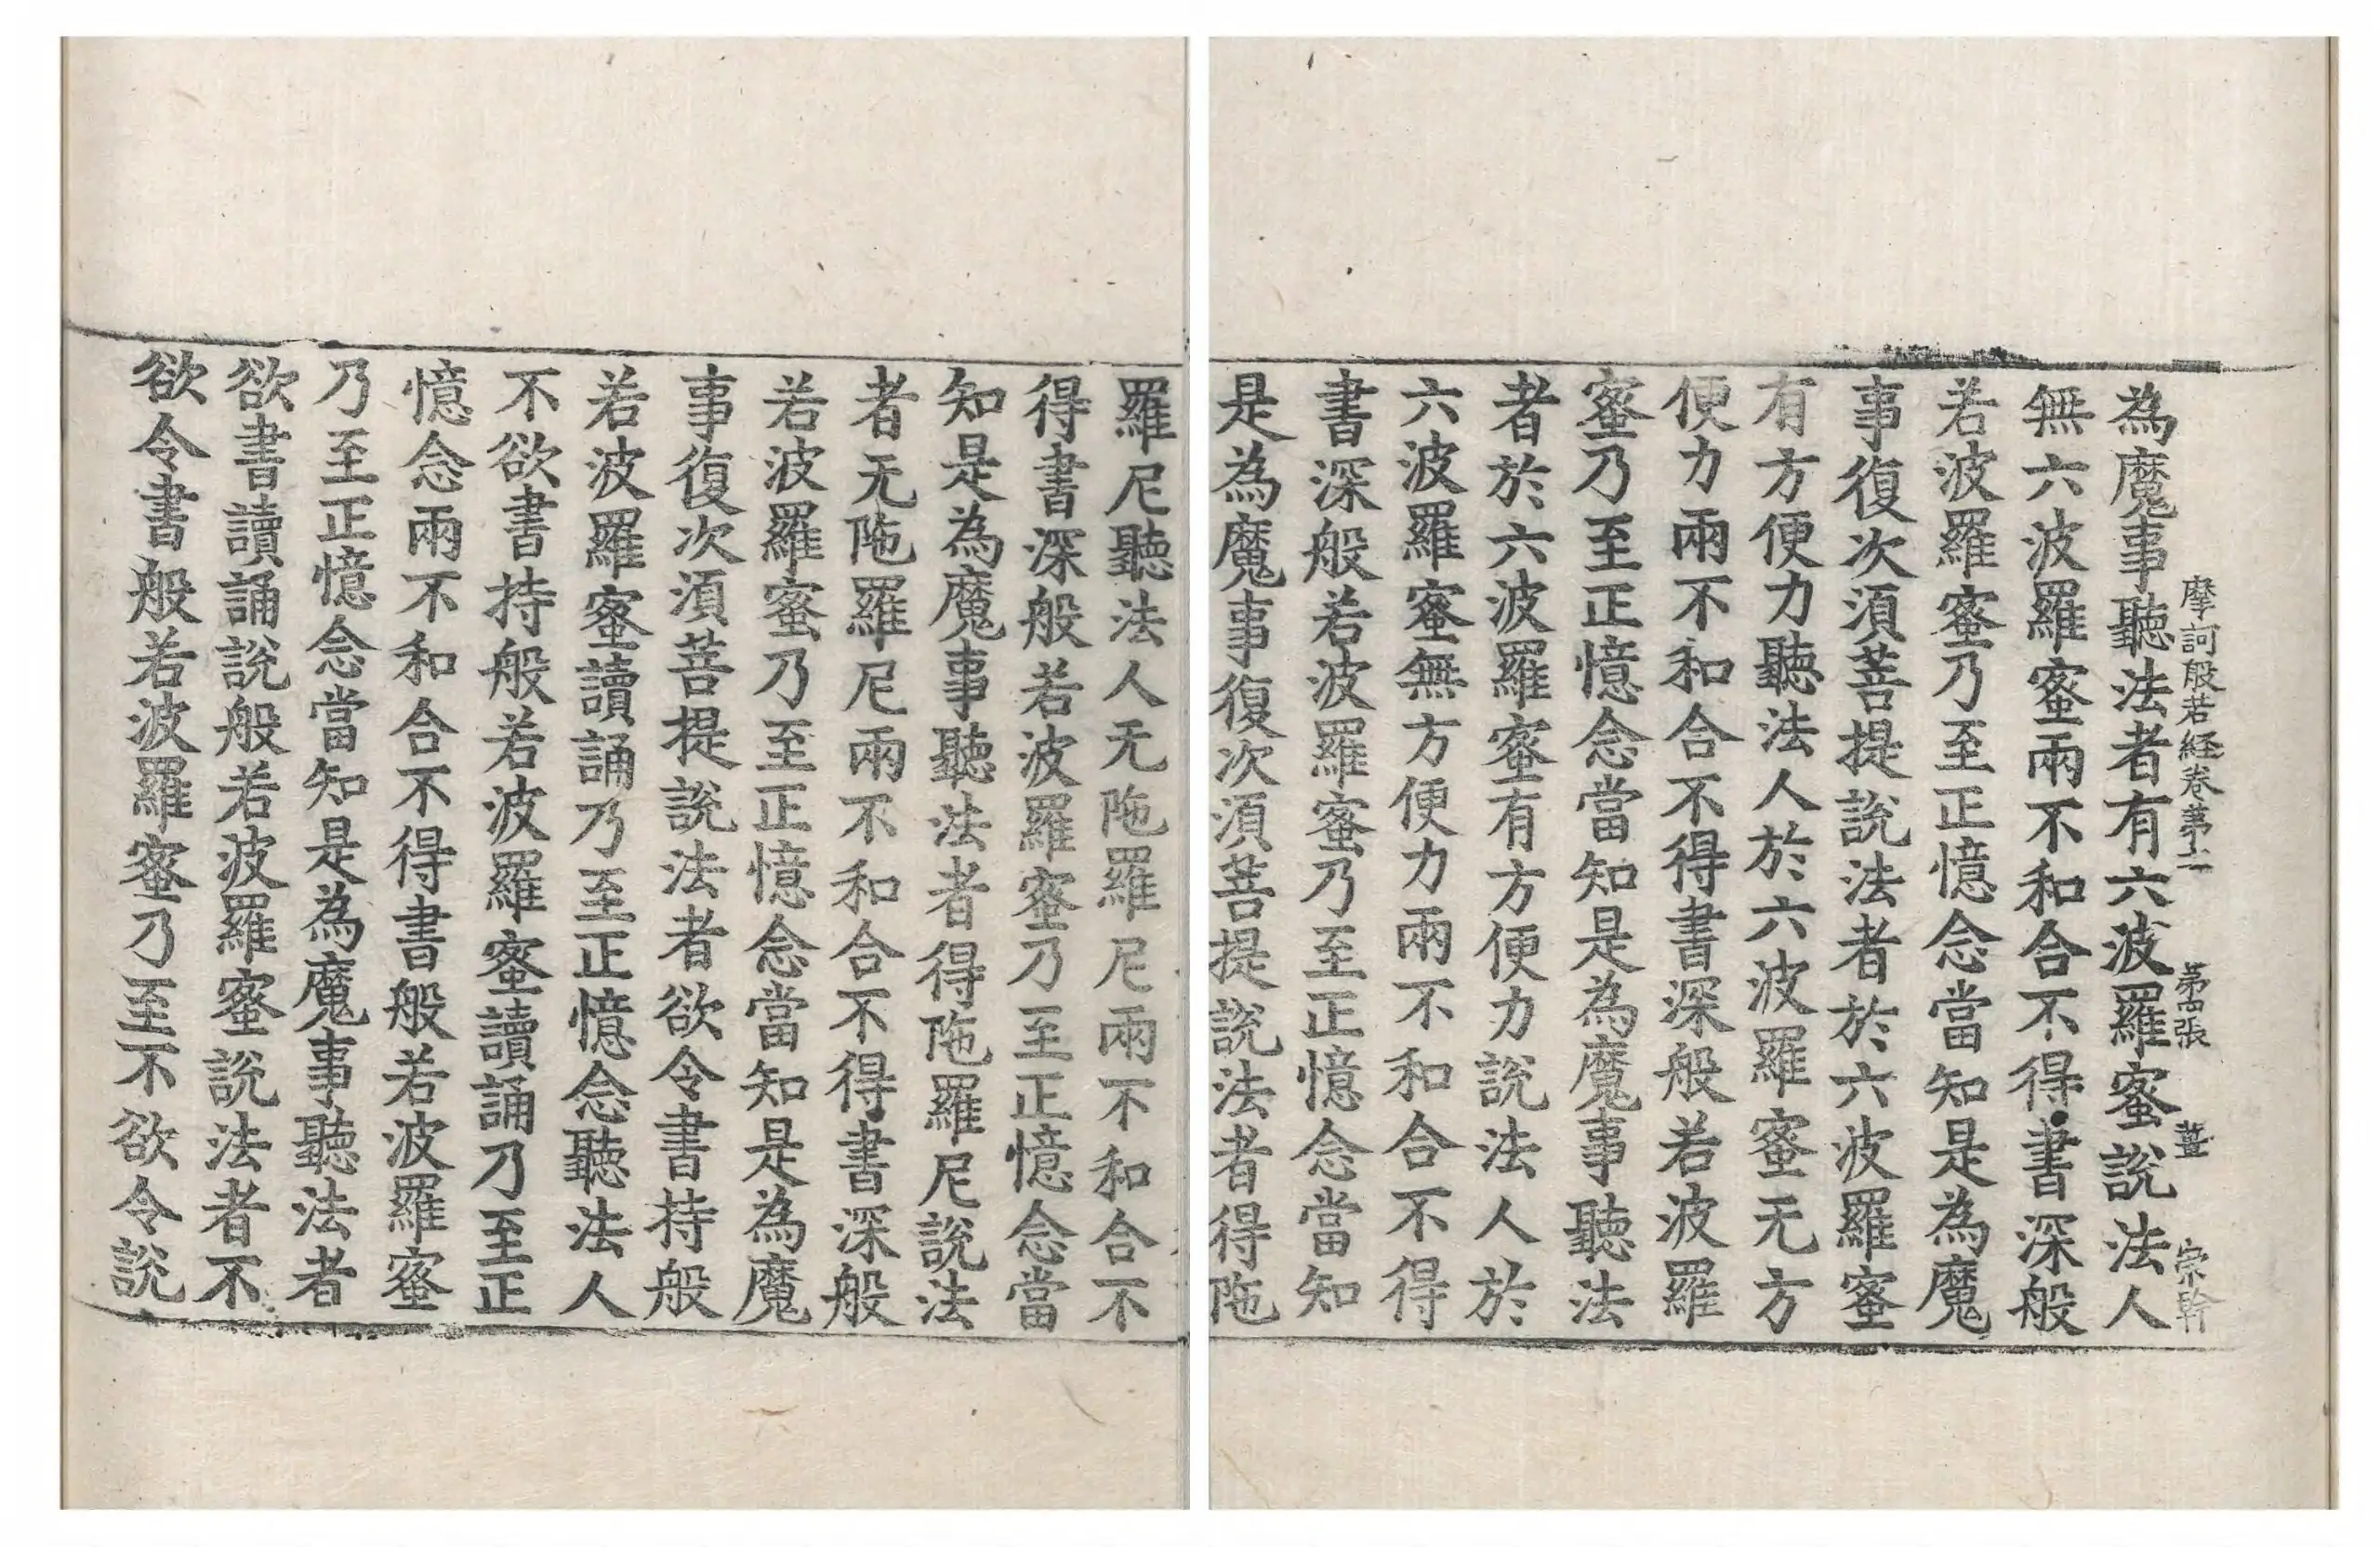 摩訶般若経卷第十二 第四張 薑 宗幹
為魔事聽法者有六波羅蜜說法人
無六波羅蜜兩不和合不得書深般
若波羅蜜乃至正憶念當知是為魔
事復次須菩提說法者於六波羅蜜
有方便力聽法人於六波羅蜜无方
便力兩不和合不得書深般若波羅
蜜乃至正憶念當知是為魔事聽法
者於六波羅蜜有方便力說法人於
六波羅蜜無方便力兩不和合不得
書深般若波羅蜜乃至正憶念當知
是為魔事復次須菩提說法者得陁
羅尼聽法人无陁羅尼兩不和合不
得書深般若波羅蜜乃至正憶念當
知是為魔事聽法者得陁羅尼說法
者无陁羅尼兩不和合不得書深般
若波羅蜜乃至正憶念當知是為魔
事復次須菩提說法者欲令書持般
若波羅蜜讀誦乃至正憶念聽法人
不欲書持般若波羅蜜讀誦乃至正
憶念兩不和合不得書般若波羅蜜
乃至正憶念當知是為魔事聽法者
欲書讀誦說般若波羅蜜說法者不
欲令書般若波羅蜜乃至不欲令說